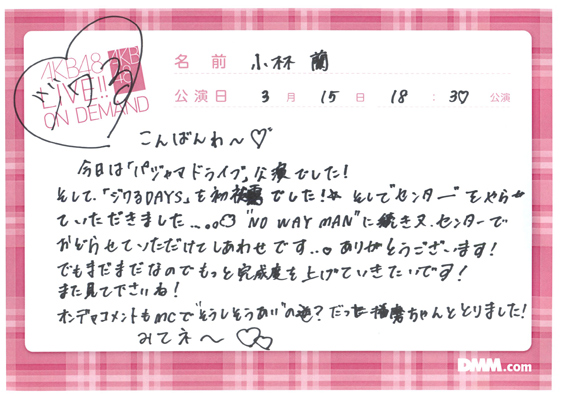 AKB48
LIVE!!
ON DEMAND
AKB
48
ジワる
名前 小林 蘭
公演日 3月 15日 18:30 公演
こんばんわ〜♡
今日は「パジャマドライブ」な夜でした!
そして、「ジワるDAYS」を初披露でした!☆ そしてセンターをやらせ
ていただきました...。。 "NO WAY MAN"に続き又、センターで
おどらせていただけてしあわせです..♡ ありがとうございます!
でもまだまだなのでもっと完成度を上げていきたいです!
また見て下さいね!
オンデャコメントもMCで"そうしそうあい"の逆?だった播磨ちゃんととりました!
みてネ〜♡♡
DMM.com